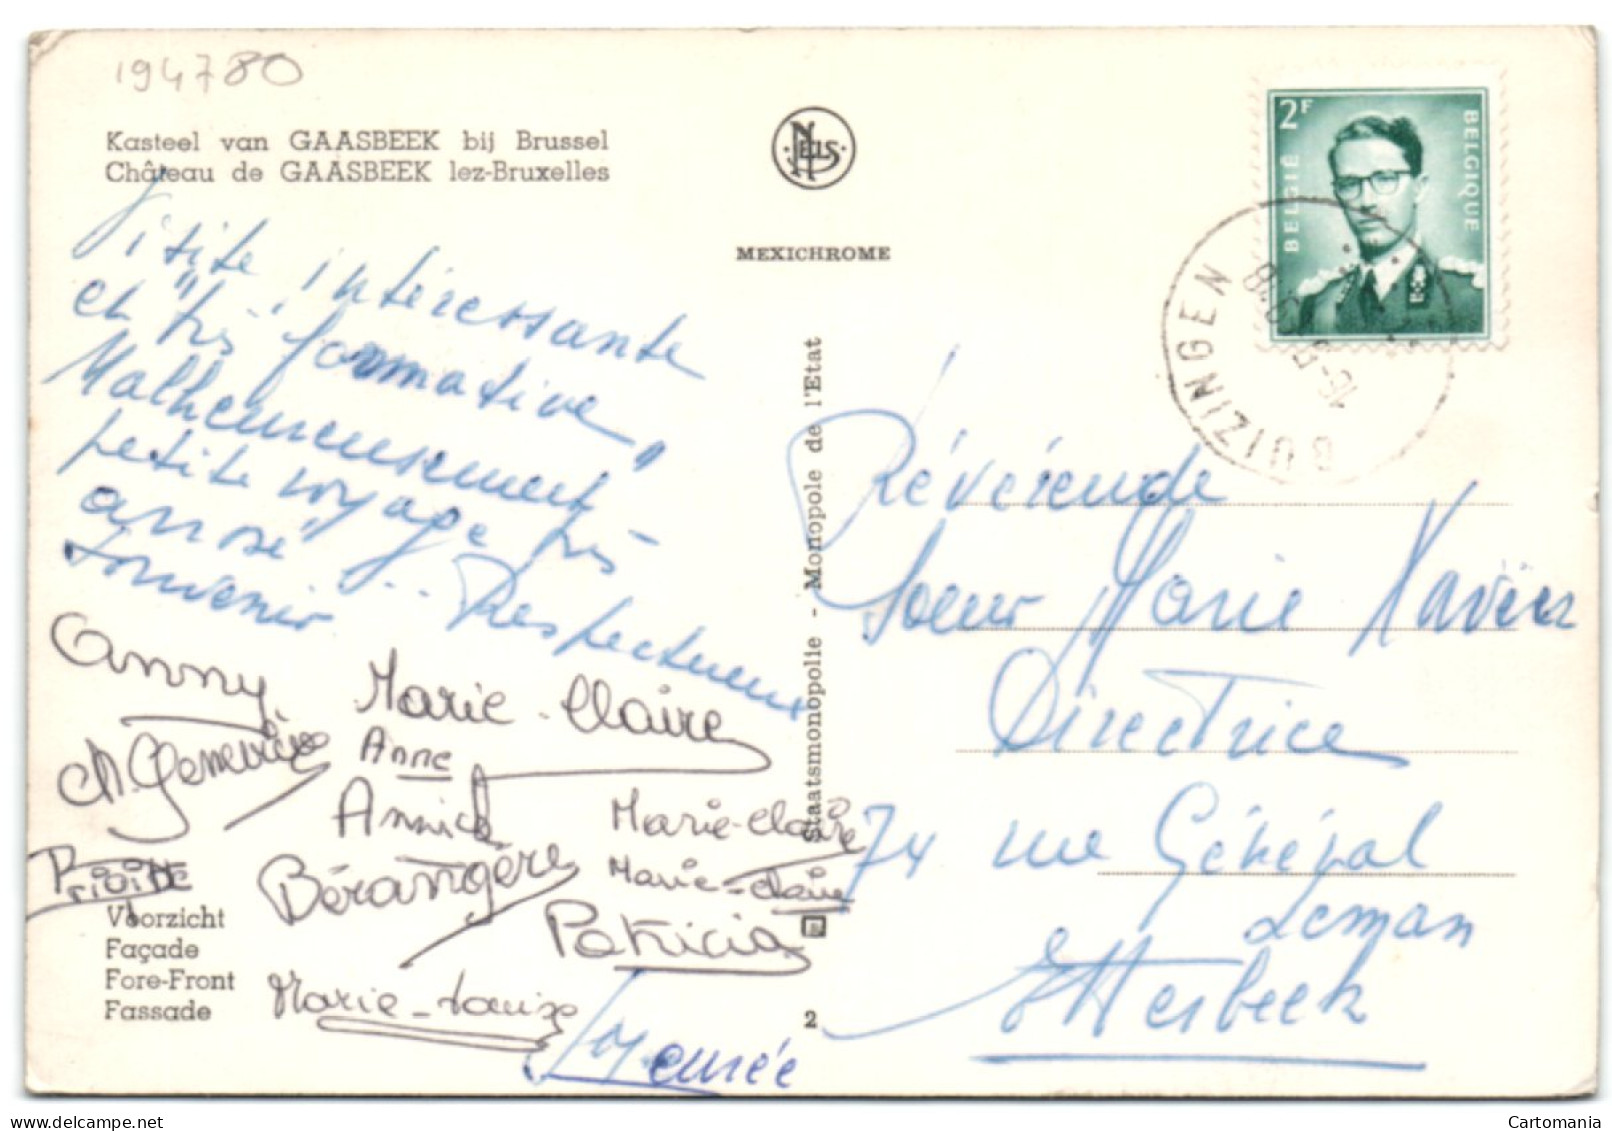 194780
Kasteel van GAASBEEK bij Brussel
Château de GAASBEEK lez-Bruxelles
NELS
MEXICHROME
2F
BELGIË
BELGIQUE
BUIZINGEN
Visite intéressante
et "très formative"
Malheureusement
petite voyage très
arrosé... Respectueux
souvenir
Anny
Marie-Claire
M. Geneviève
Anne
Annick
Marie-Claire
Brigitte
Bérangère
Marie-Claire
Patricia
Marie-Louise
Voorzicht
Façade
Fore-Front
Fassade
Staatsmonopolie - Monopole de l'Etat
2
Révérende
Soeur Marie Xavier
Directrice
74 rue Général
Leman
Etterbeek
Cartomania